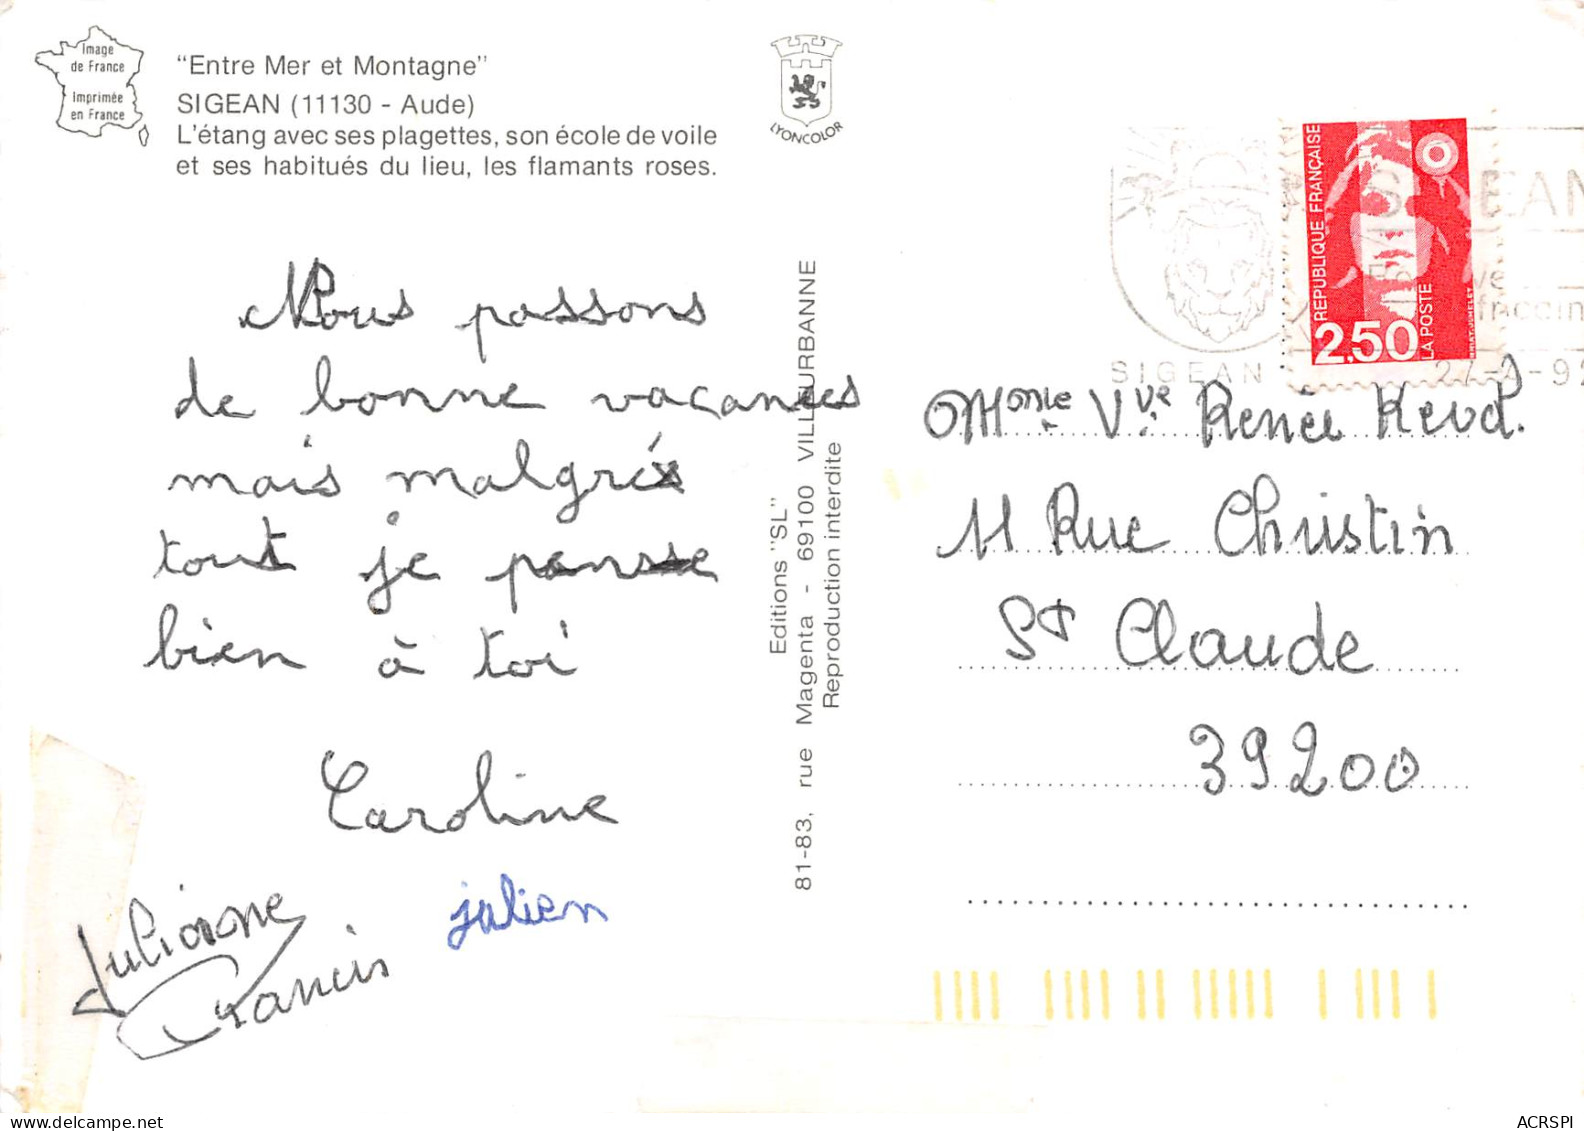 Image
de France
Imprimée
en France
"Entre Mer et Montagne"
SIGEAN (11130 - Aude)
L'étang avec ses plagettes, son école de voile
et ses habitués du lieu, les flamants roses.
LYONCOLOR
Nous passons
de bonne vacances
mais malgrés
tout je pense
bien à toi
Caroline
Julianne
Francis
julien
Editions "SL"
81-83, rue Magenta - 69100 VILLEURBANNE
Reproduction interdite
REPUBLIQUE FRANÇAISE
2,50
LA POSTE
SIGEAN
SIGEAN
Mme Vve Renée
11 Rue Christin
St Claude
39200
ACRSPI